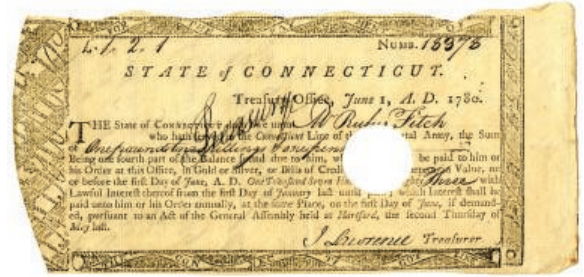 FOR
L. 1. 2. 1 NUMB. 15373
STATE of CONNECTICUT.
Treasury-Office, June 1, A. D. 1780.
THE State of CONNECTICUT doth owe unto Mr Rufus Fitch
who hath served in the Connecticut Line of the Army, the Sum
of One pound two shillings & one penny
Being one fourth part of the Balance found due to him, be paid to him or
his Order at this Office, in Gold or Silver, or Bills of Credit Value, on
or before the first Day of June, A. D. One Thousand Seven Three with
Lawful Interest thereof from the first Day of January last until Interest shall be
paid unto him or his Order annually, at the same Place, on the first Day of June, if demand-
ed, pursuant to an Act of the General Assembly held at Hartford, the second Thursday of
May last.
J Lawrence Treasurer.